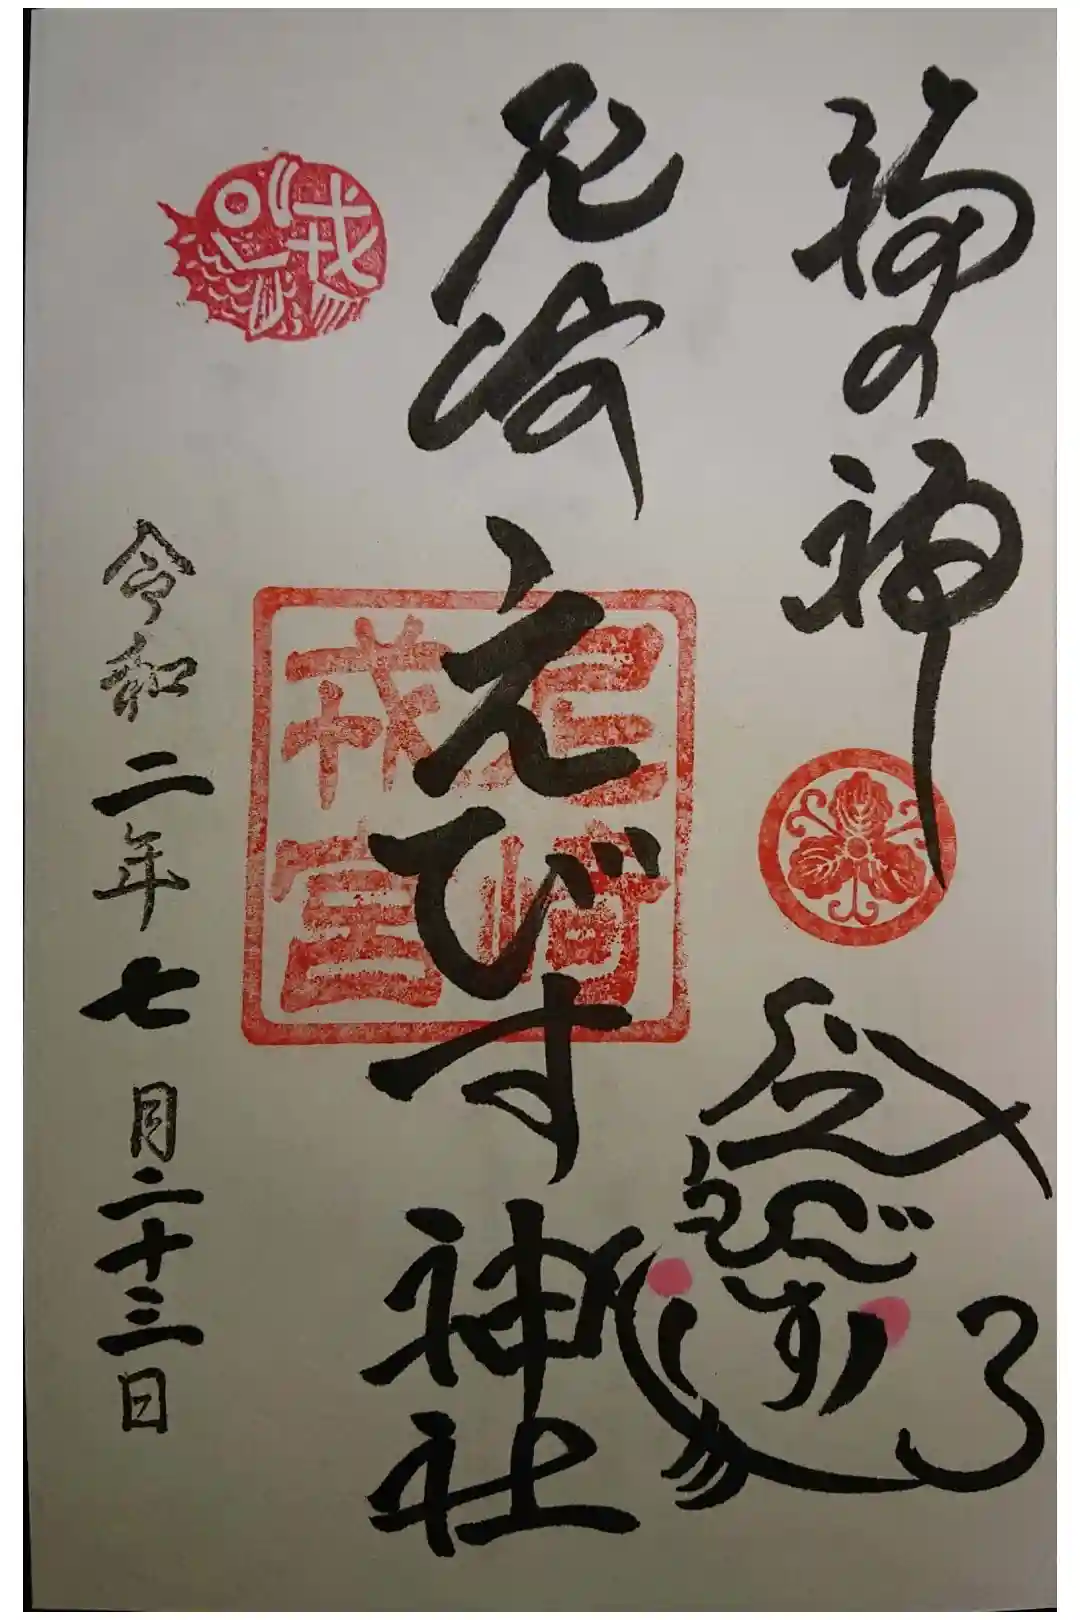 福の神
尼崎えびす神社
尼崎
戎宮
戎
令和二年七月二十三日